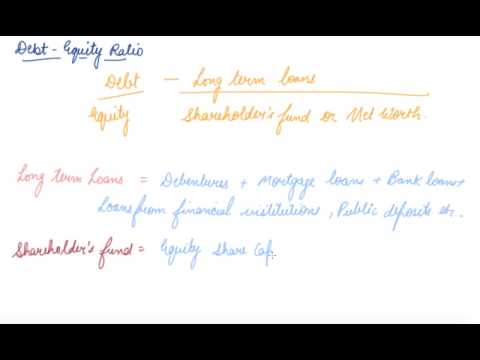 Debt - Equity Ratio
Debt — Long term loans
Equity Shareholder's fund or Net Worth.
Long term Loans = Debentures + Mortgage loans + Bank loans +
Loans from financial institutions, Public deposits etc.
Shareholder's fund = Equity Share Cap